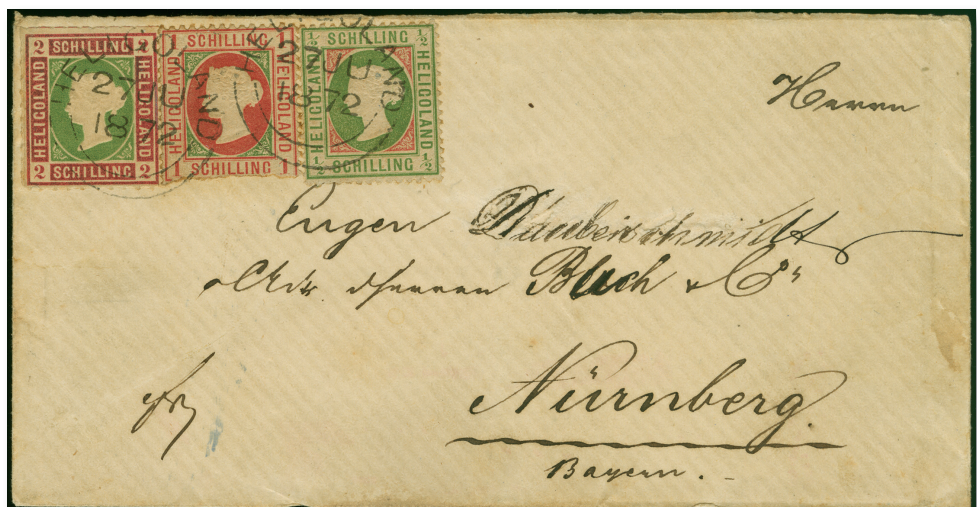 2 SCHILLING 2
HELIGOLAND
HELIGOLAND
2 SCHILLING 2
1 SCHILLING 1
HELIGOLAND
HELIGOLAND
1 SCHILLING 1
½ SCHILLING ½
HELIGOLAND
HELIGOLAND
½ SCHILLING ½
HELIGOLAND
27 JU
1872
HELIGOLAND
27 JU
1872
Herrn
Eugen Daubenschmidt
Herren Bloch & Co
Nürnberg
Bayern.